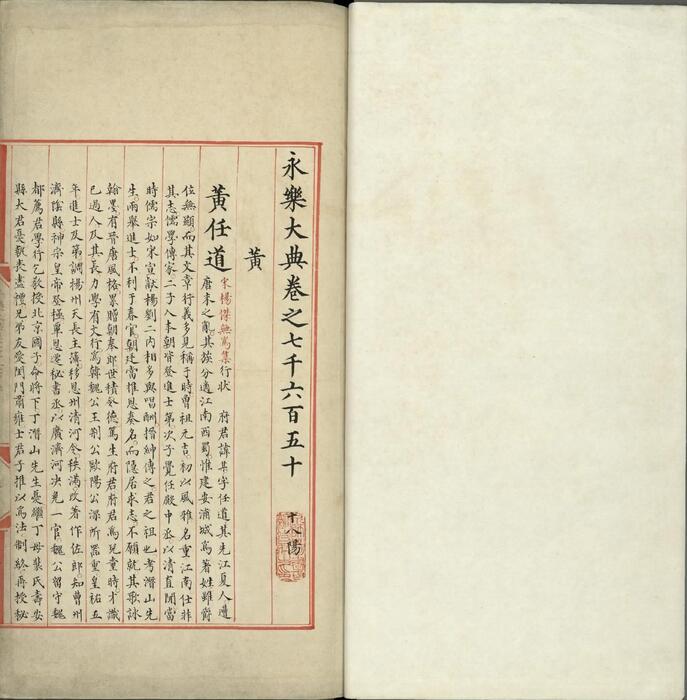 永樂大典卷之七千六百五十 十八陽
黃
黃任道
宋楊傑無爲集行狀 府君諱某字任道其先江夏人遭
唐末之亂其族分適江南西蜀惟建安浦城爲著姓雖爵
位無顯而其文章行義多見稱于時曾祖元吉初以風雅名重江南仕非
其志儒學傳家二子入本朝皆登進士第次子覺任殿中丞以清直聞當
時儒宗如宋宣獻楊劉二內相多與唱酬搢紳傳之君之祖也考潛山先
生兩舉進士不利于春官朝廷當推恩奏名而隱居求志不願就其歌詠
翰墨有晉唐風格累贈朝奉郎世積令德篤生府君府君爲兒童時才識
已過人及其長力學有文行爲韓魏公王荊公歐陽公深所器重皇祐五
年進士及第調揚州天長主簿移恩州清河令秩滿改著作佐郎知曹州
濟陰縣神宗皇帝登極覃恩遷秘書丞以廣濟河決免一官魏公留守魏
都薦君學行乞教授北京國子命將下丁潛山先生憂繼丁母葉氏壽安
縣太君憂執喪盡禮兄弟友愛閨門肅雍士君子推以爲法制終再授秘